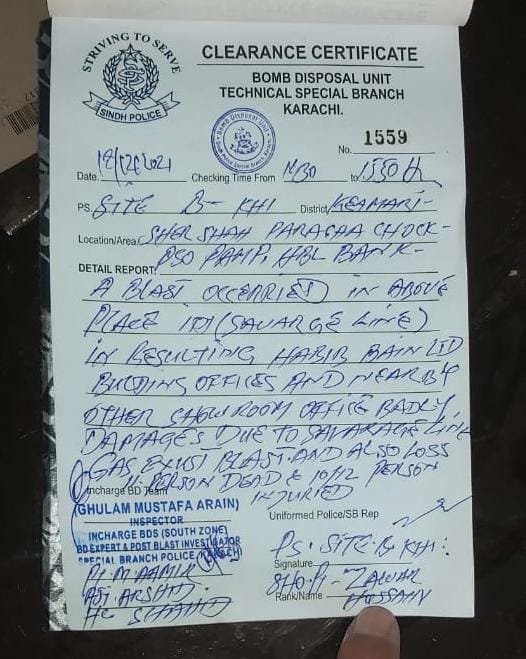 STRIVING TO SERVE
SINDH POLICE
CLEARANCE CERTIFICATE
BOMB DISPOSAL UNIT
TECHNICAL SPECIAL BRANCH
KARACHI.
Bomb Disposal Unit
No. 1559
Date 18/12/2021 Checking Time From to 1550 H
PS. SITE B- KHI District KEAMARI-
Location/Area: SHER SHAH PARACHA CHOCK-
PSO PAMP, HBL BANK-
DETAIL REPORT:
A BLAST OCCERRIED IN ABOVE
PLACE (SAVARGE LINE)
IN RESULTING HABIB BAIN LTD
BUILDING OFFICES AND NEARBY
OTHER SHOWROOM OFFICE BADLY
DAMAGES DUE TO SAVARAGE LINE
GAS EXUST BLAST. AND ALSO LOSS
11 PERSON DEAD & 10/12 PERSON
INJURIED
Incharge BD Team
(GHULAM MUSTAFA ARAIN)
INSPECTOR
INCHARGE BDS (SOUTH ZONE)
BD EXPERT & POST BLAST INVESTIGATOR
SPECIAL BRANCH POLICE, KARACHI
M. AAMIR
ARSHD
HC SHAHID
Uniformed Police/SB Rep
PS. SITE-B KHI.
Signature
SHO. PI- ZAWAR
Rank/Name HUSSAIN